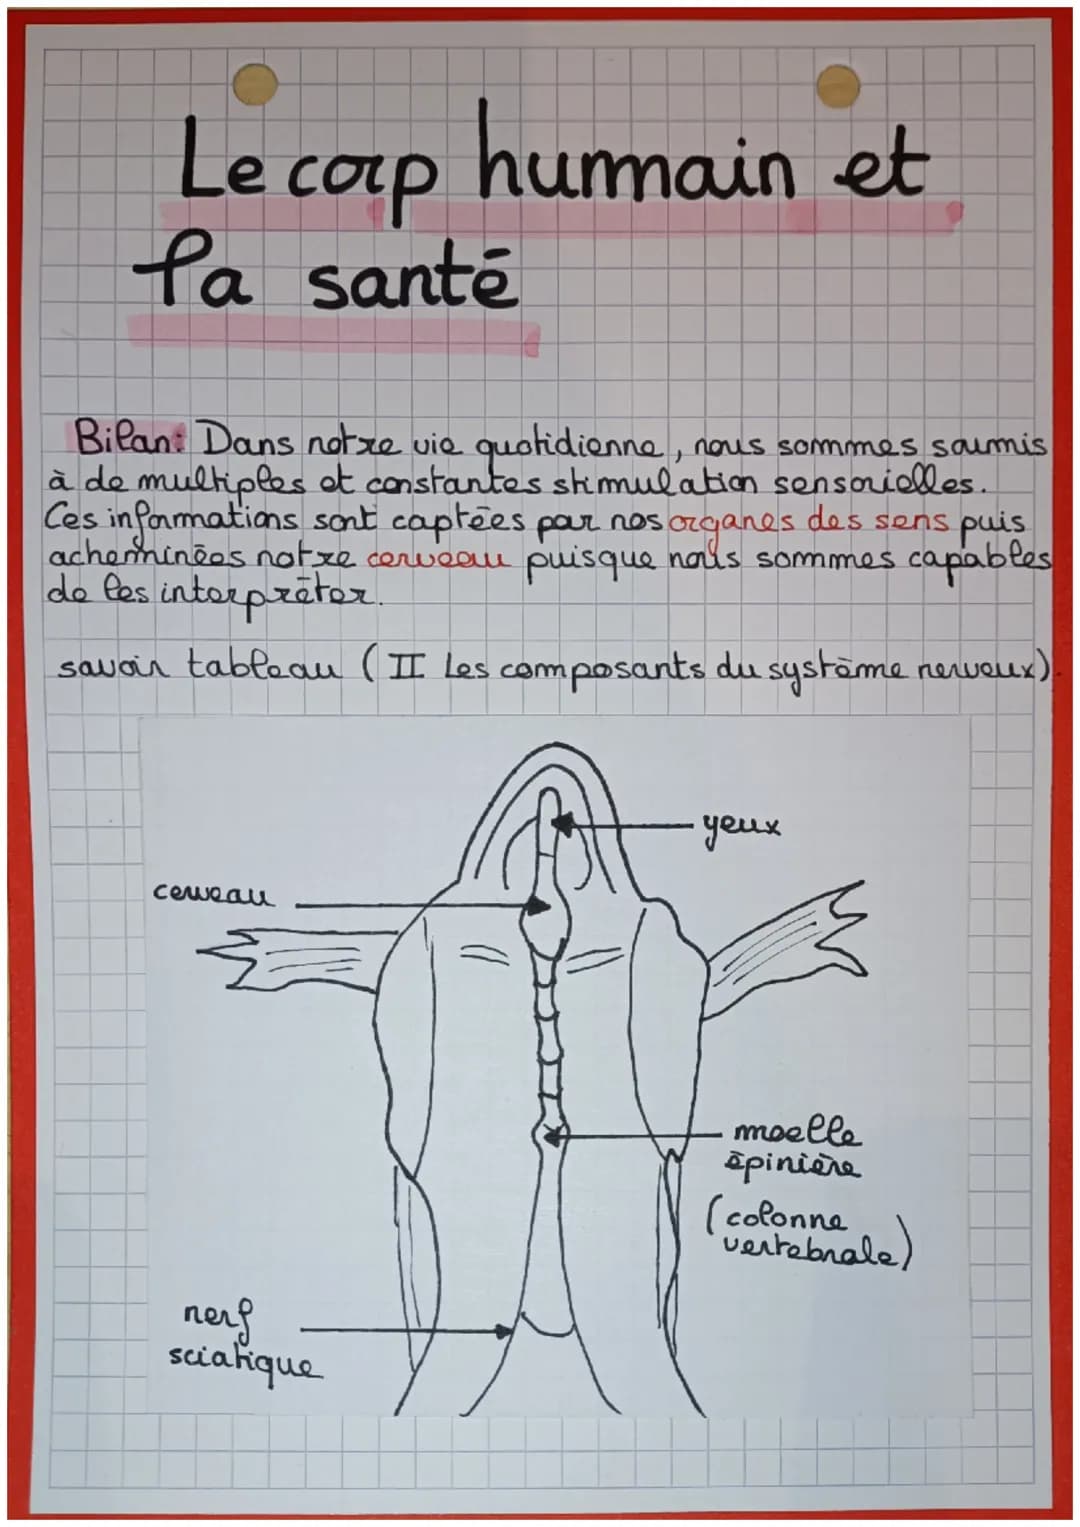 Le corp humain et
la santé
Bilan: Dans notre vie quotidienne, nous sommes soumis
à de multiples et constantes stimulation sensorielles.
Ces informations sont captées par nos organes des sens puis
acheminées notre cerveau puisque nous sommes capables
de les interpréter.
savoir tableau (II Les composants du système nerveux).
yeux
cerveau
moelle
épinière
(colonne
vertebrale)
nerf
sciatique